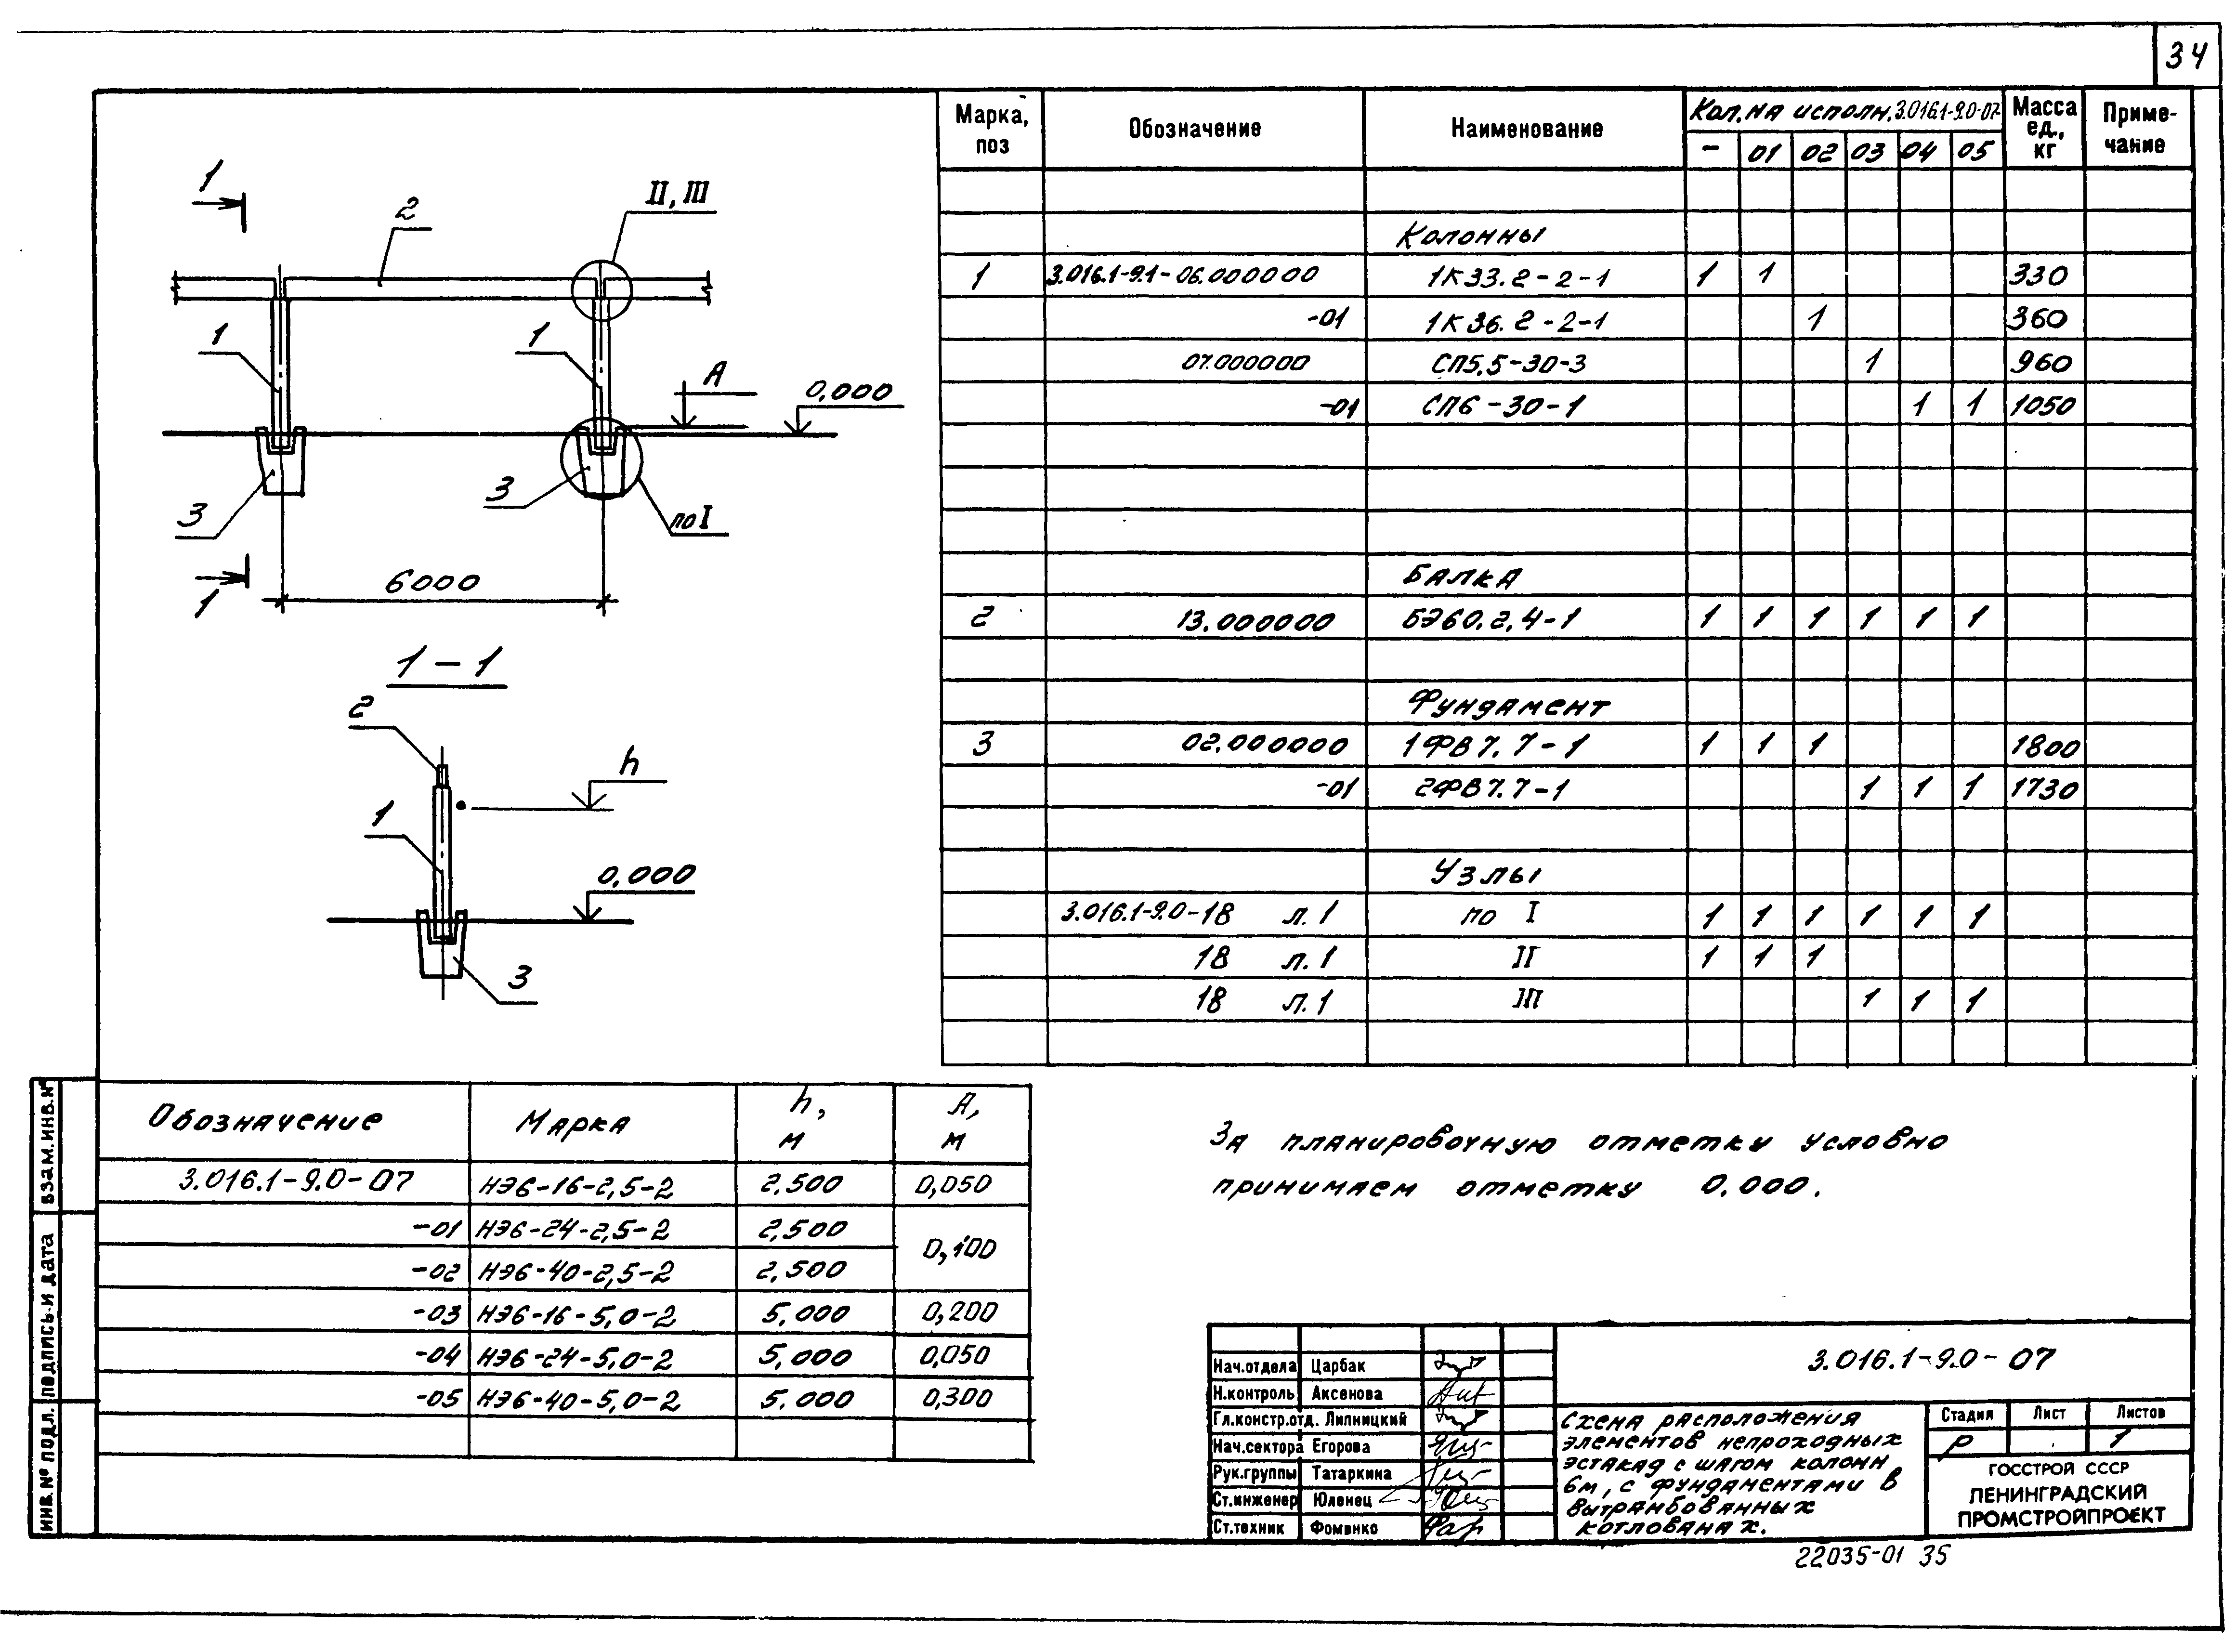 34
1
2
II, III
1
1
А
0,000
3
3
по I
6000
1
1-1
2
h
1
0,000
3
Марка, поз	Обозначение	Наименование	Кол. на исполн. 3.016.1-9.0-07	Масса ед., кг	Приме-чание
-	01	02	03	04	05
Колонны
1	3.016.1-9.1-06.000000	1К33.2-2-1	1	1	330
-01	1К36.2-2-1	1	360
07.000000	СП5,5-30-3	1	960
-01	СП6-30-1	1	1	1050
Балка
2	13.000000	БЭ60.2,4-1	1	1	1	1	1	1
Фундамент
3	02.000000	1ФВ7.7-1	1	1	1	1800
-01	2ФВ7.7-1	1	1	1	1730
Узлы
3.016.1-9.0-18 л.1	по I	1	1	1	1	1	1
18 л.1	II	1	1	1
18 л.1	III	1	1	1
Обозначение	Марка	h, м	А, м
3.016.1-9.0-07	НЭ6-16-2,5-2	2,500	0,050
-01	НЭ6-24-2,5-2	2,500	0,100
-02	НЭ6-40-2,5-2	2,500
-03	НЭ6-16-5,0-2	5,000	0,200
-04	НЭ6-24-5,0-2	5,000	0,050
-05	НЭ6-40-5,0-2	5.000	0,300
За планировочную отметку условно
принимаем отметку 0.000.
Взам.инв.№
Подпись и дата
Инв.№ подл.
Нач.отдела	Царбак
Н.контроль	Аксенова
Гл.констр.отд.	Липницкий
Нач.сектора	Егорова
Рук.группы	Татаркина
Ст.инженер	Юленец
Ст.техник	Фоменко
3.016.1-9.0-07
Схема расположения
элементов непроходных
эстакад с шагом колонн
6м, с фундаментами в
вытрамбованных
котлованах.
Стадия	Лист	Листов
Р	1
ГОССТРОЙ СССР
ЛЕНИНГРАДСКИЙ
ПРОМСТРОЙПРОЕКТ
22035-01 35